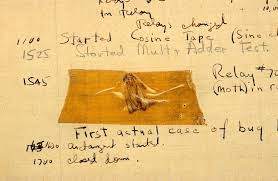 in relay
Relays changed
1100 Started Cosine Tape (Sine c
1525 Started Mult + Adder Test.
1545 Relay #70
(Moth) in r
First actual case of bug b
1630 antangent started.
1700 closed down.